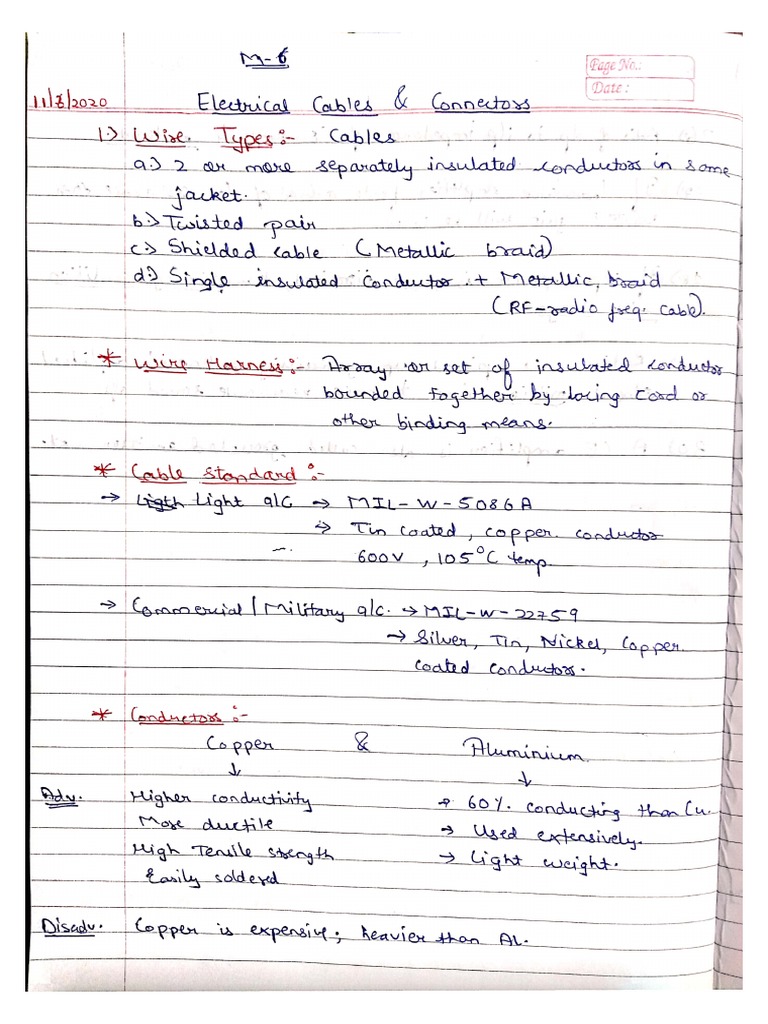 M-6
Page No.:
Date :
11/8/2020
Electrical Cables & Connectors
1.) Wire Types:- Cables
a.) 2 or more separately insulated conductors in same
jacket.
b.) Twisted pair
c.) Shielded cable (Metallic braid)
d.) Single insulated conductor + Metallic braid
(RF-radio freq. cable).
* Wire Harness:- Array or set of insulated conductor
bounded together by lacing cord or
other binding means.
* Cable standard :-
→ Light a/c → MIL-W-5086A
→ Tin coated, copper conductor
600V, 105°C temp.
→ Commercial / Military a/c. → MIL-W-22759
→ Silver, Tin, Nickel, Copper
coated conductors.
* Conductors :-
Copper & Aluminium
↓ ↓
Adv. Higher conductivity → 60% conducting than Cu.
More ductile → Used extensively.
High Tensile strength → Light weight.
Easily soldered
Disadv. Copper is expensive; heavier than AL.